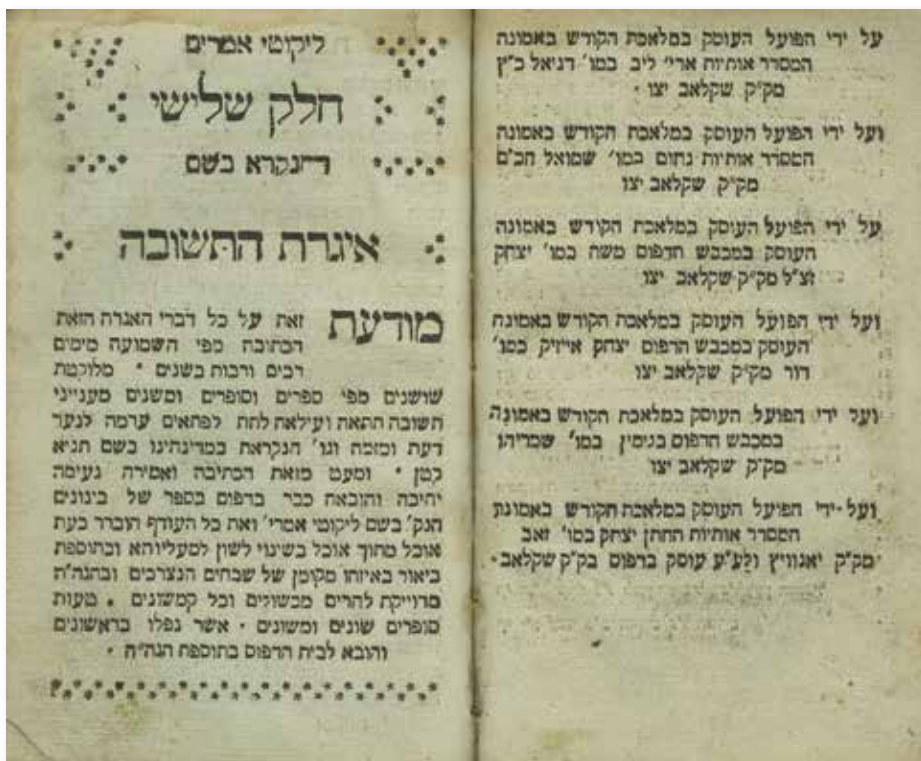 על ידי הפועל העוסק במלאכת הקודש באמונה
המסדר אותיות ארי' ליב במו' דניאל כ"ץ
מק"ק שקלאב יצו
ועל ידי הפועל העוסק במלאכת הקודש באמונה
המסדר אותיות נחום במו' שמואל
מק"ק שקלאב יצו
על ידי הפועל העוסק במלאכת הקודש באמונה
העוסק במכבש הדפוס משה במו' יצחק
זצ"ל מק"ק שקלאב יצו
ועל ידי הפועל העוסק במלאכת הקודש באמונה
העוסק במכבש הדפוס יצחק אייזיק במו'
דור מק"ק שקלאב יצו
ועל ידי הפועל העוסק במלאכת הקודש באמונה
במכבש הדפוס בנימין במו' שמריהו
מק"ק שקלאב יצו
ועל ידי הפועל העוסק במלאכת הקודש באמונה
המסדר אותיות החתן יצחק במו' זאב
מק"ק יאנוויץ ולע"ע עוסק בדפוס בק"ק שקלאב
ליקוטי אמרים
חלק שלישי
הנקרא בשם
איגרת התשובה
מודעת זאת על כל דברי האגרה הזאת
הכתובה מפי השמועה מימים
רבים ורבות בשנים • מלוקטת
שושנים מפי ספרים וסופרים ומשנים מענייני
תשובה תתאה ועילאה לתת לפתאים ערמה לנער
דעת ומזמה וגו' הנקראת במדינתינו בשם תניא
קטן • ומעט מזאת הכתיבה ואמירה נעימה
יחיבה והובאת כבר בדפוס בספר של בינונים
הנק' בשם ליקוטי אמרי' ואת כל העודף הוברר כעת
אוכל מתוך אוכל בשינוי לשון למעליותא ובתוספת
ביאור באיזהו מקומן של שבחים הנצרכים ובהגה"ה
מדוייקת להרים מכשולים וכל קמשונים • טעות
סופרים שונים ומשונים • אשר נפלו בראשונים
והובא לבית הדפוס בתוספת הגה"ה •